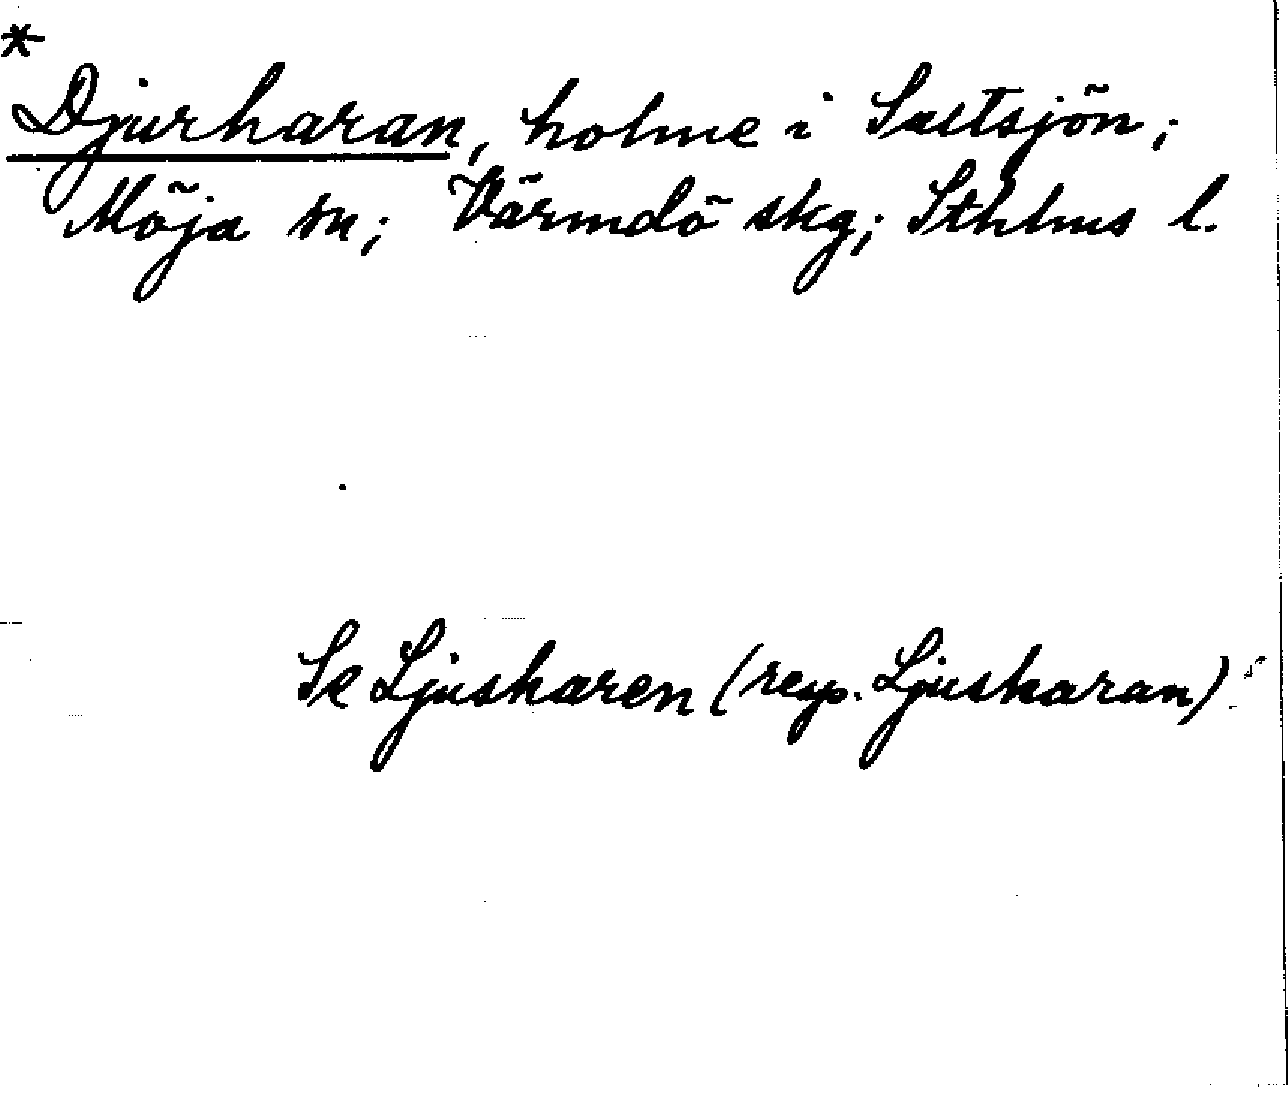 *
Djurharan, holme i Saltsjön;
Möja sn; Värmdö skg; Sthlms l.
Se Ljusharen (resp. Ljusharan)